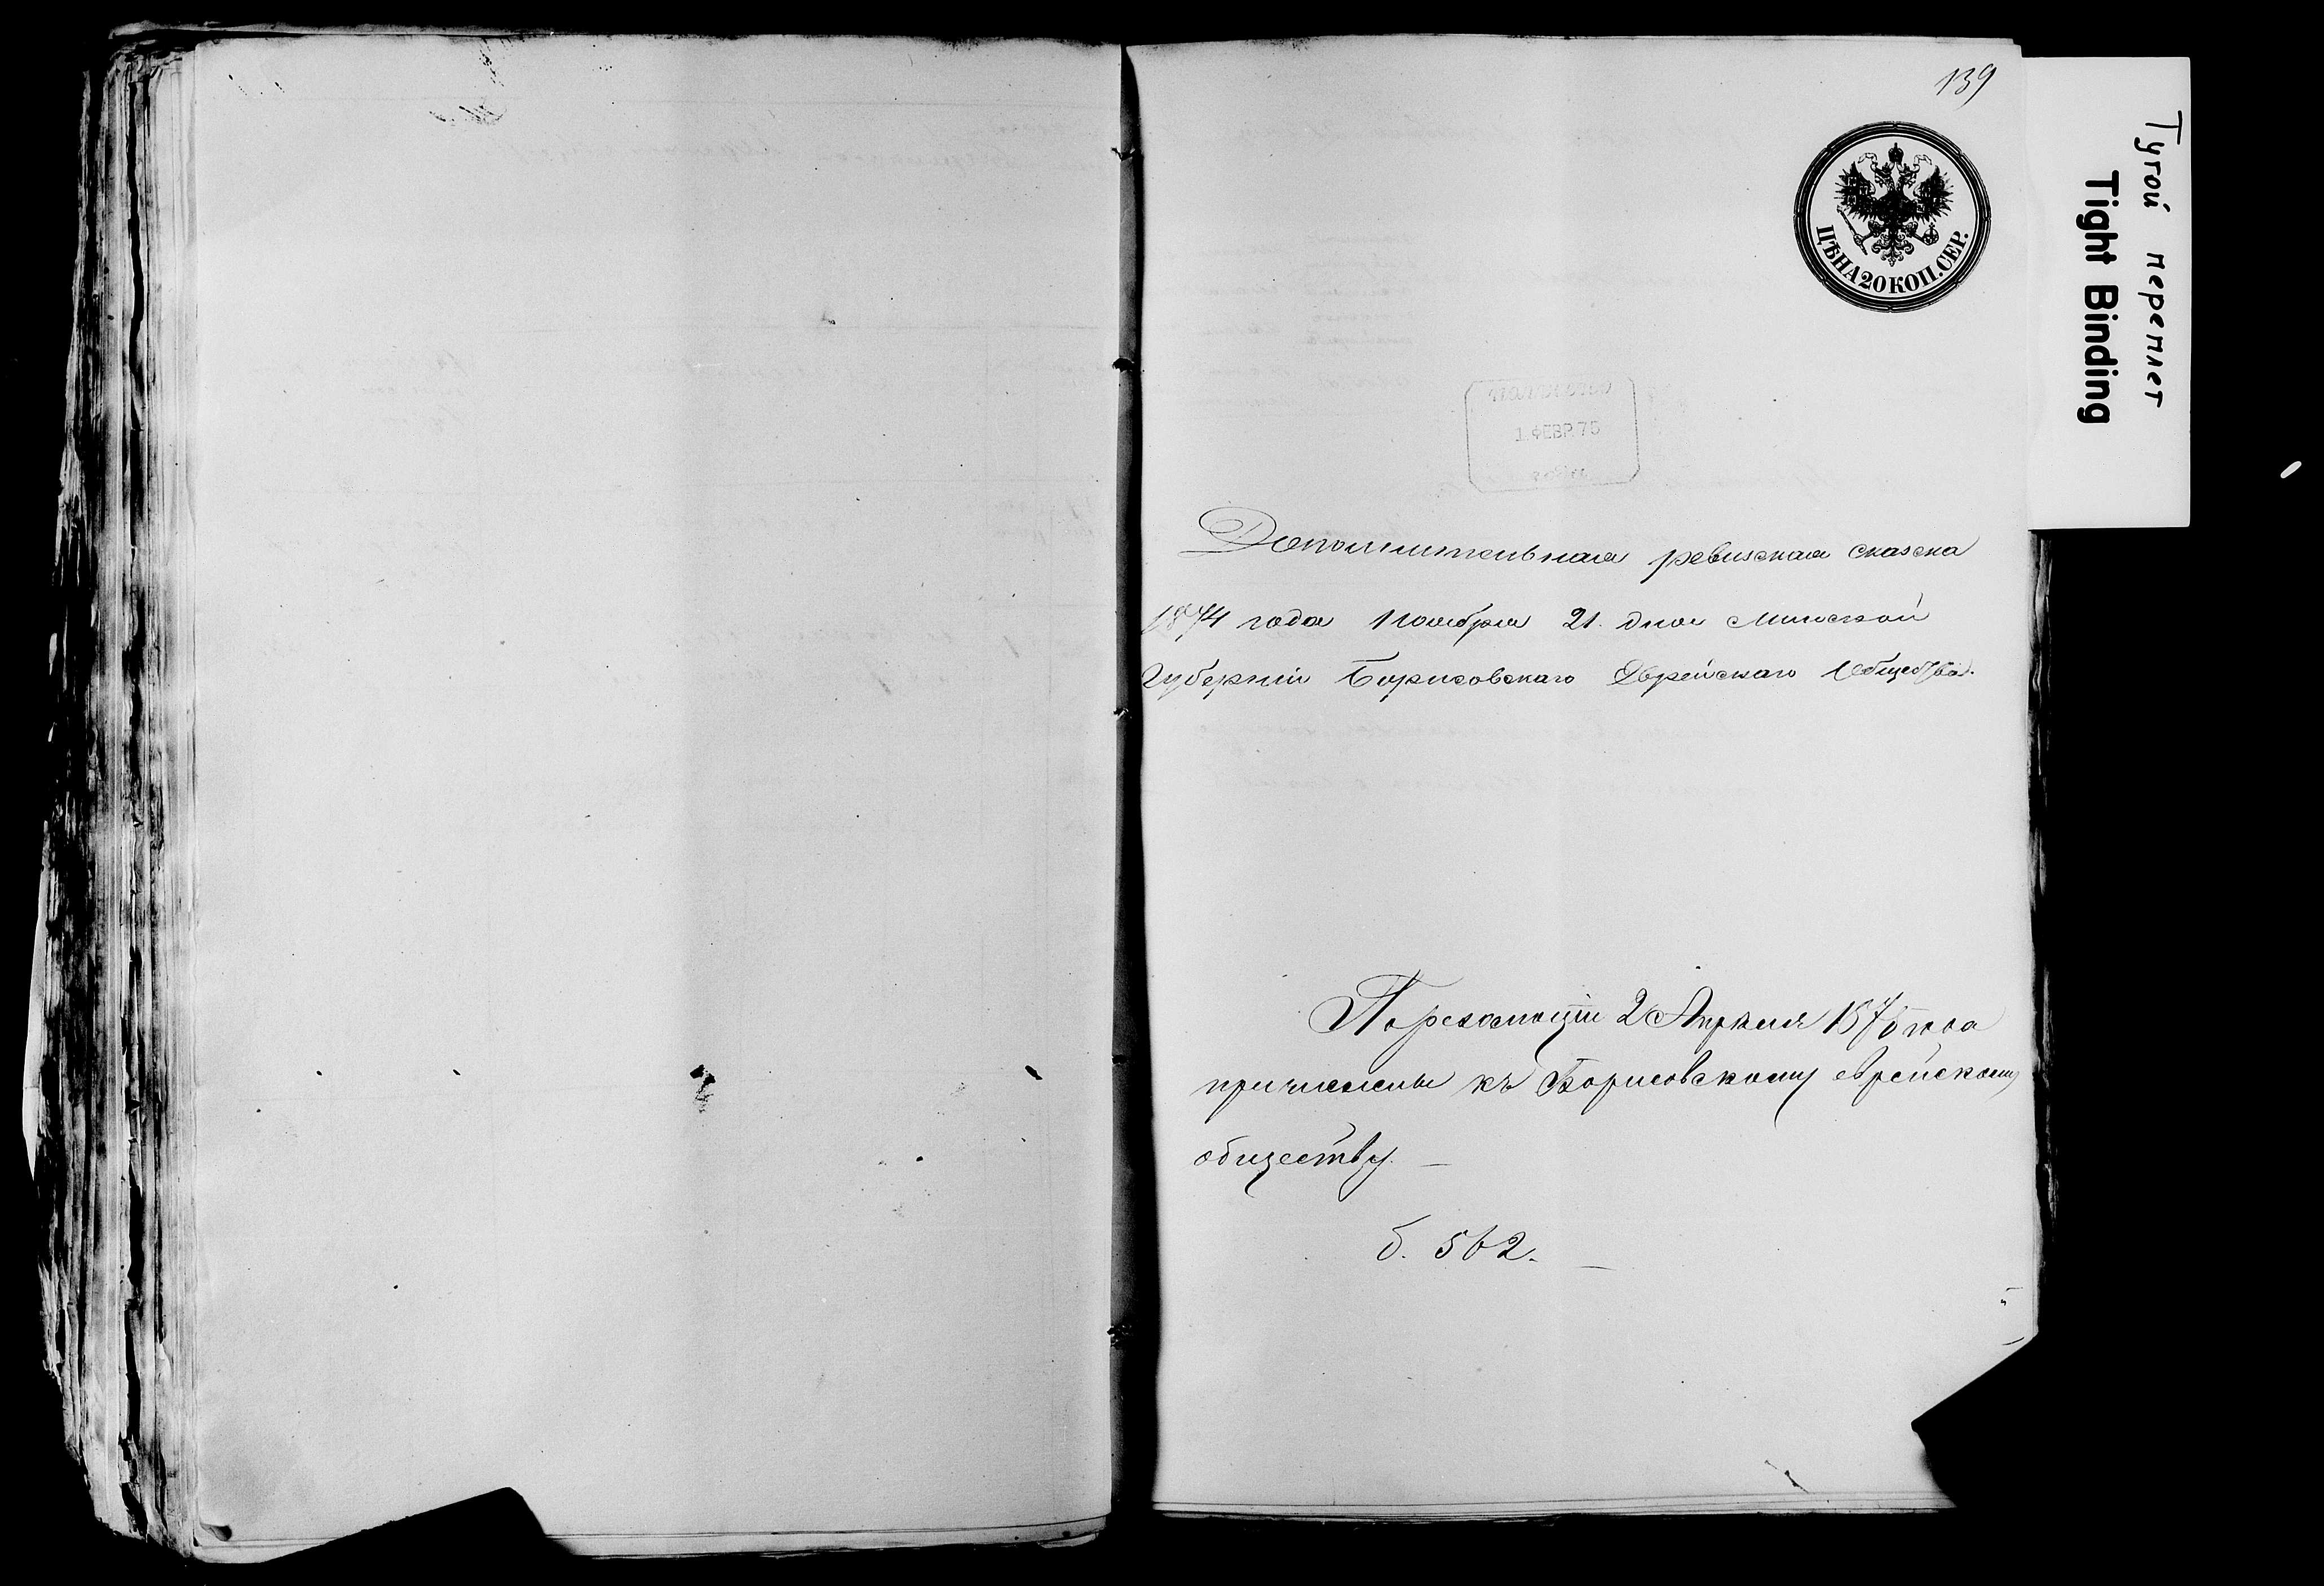 139
ЦѢНА 20 КОП. СЕР.
Тугой переплет
Tight Binding
1 ФЕВР. 75
Дополнительная ревизская сказка
1874 года Ноября 21 дня Минской
Губерніи Борисовскаго Еврейскаго Общества.
По резолюціи 2 Апрѣля 1875 года
причислены къ Борисовскому еврейскому
обществу. —
б. 562. —